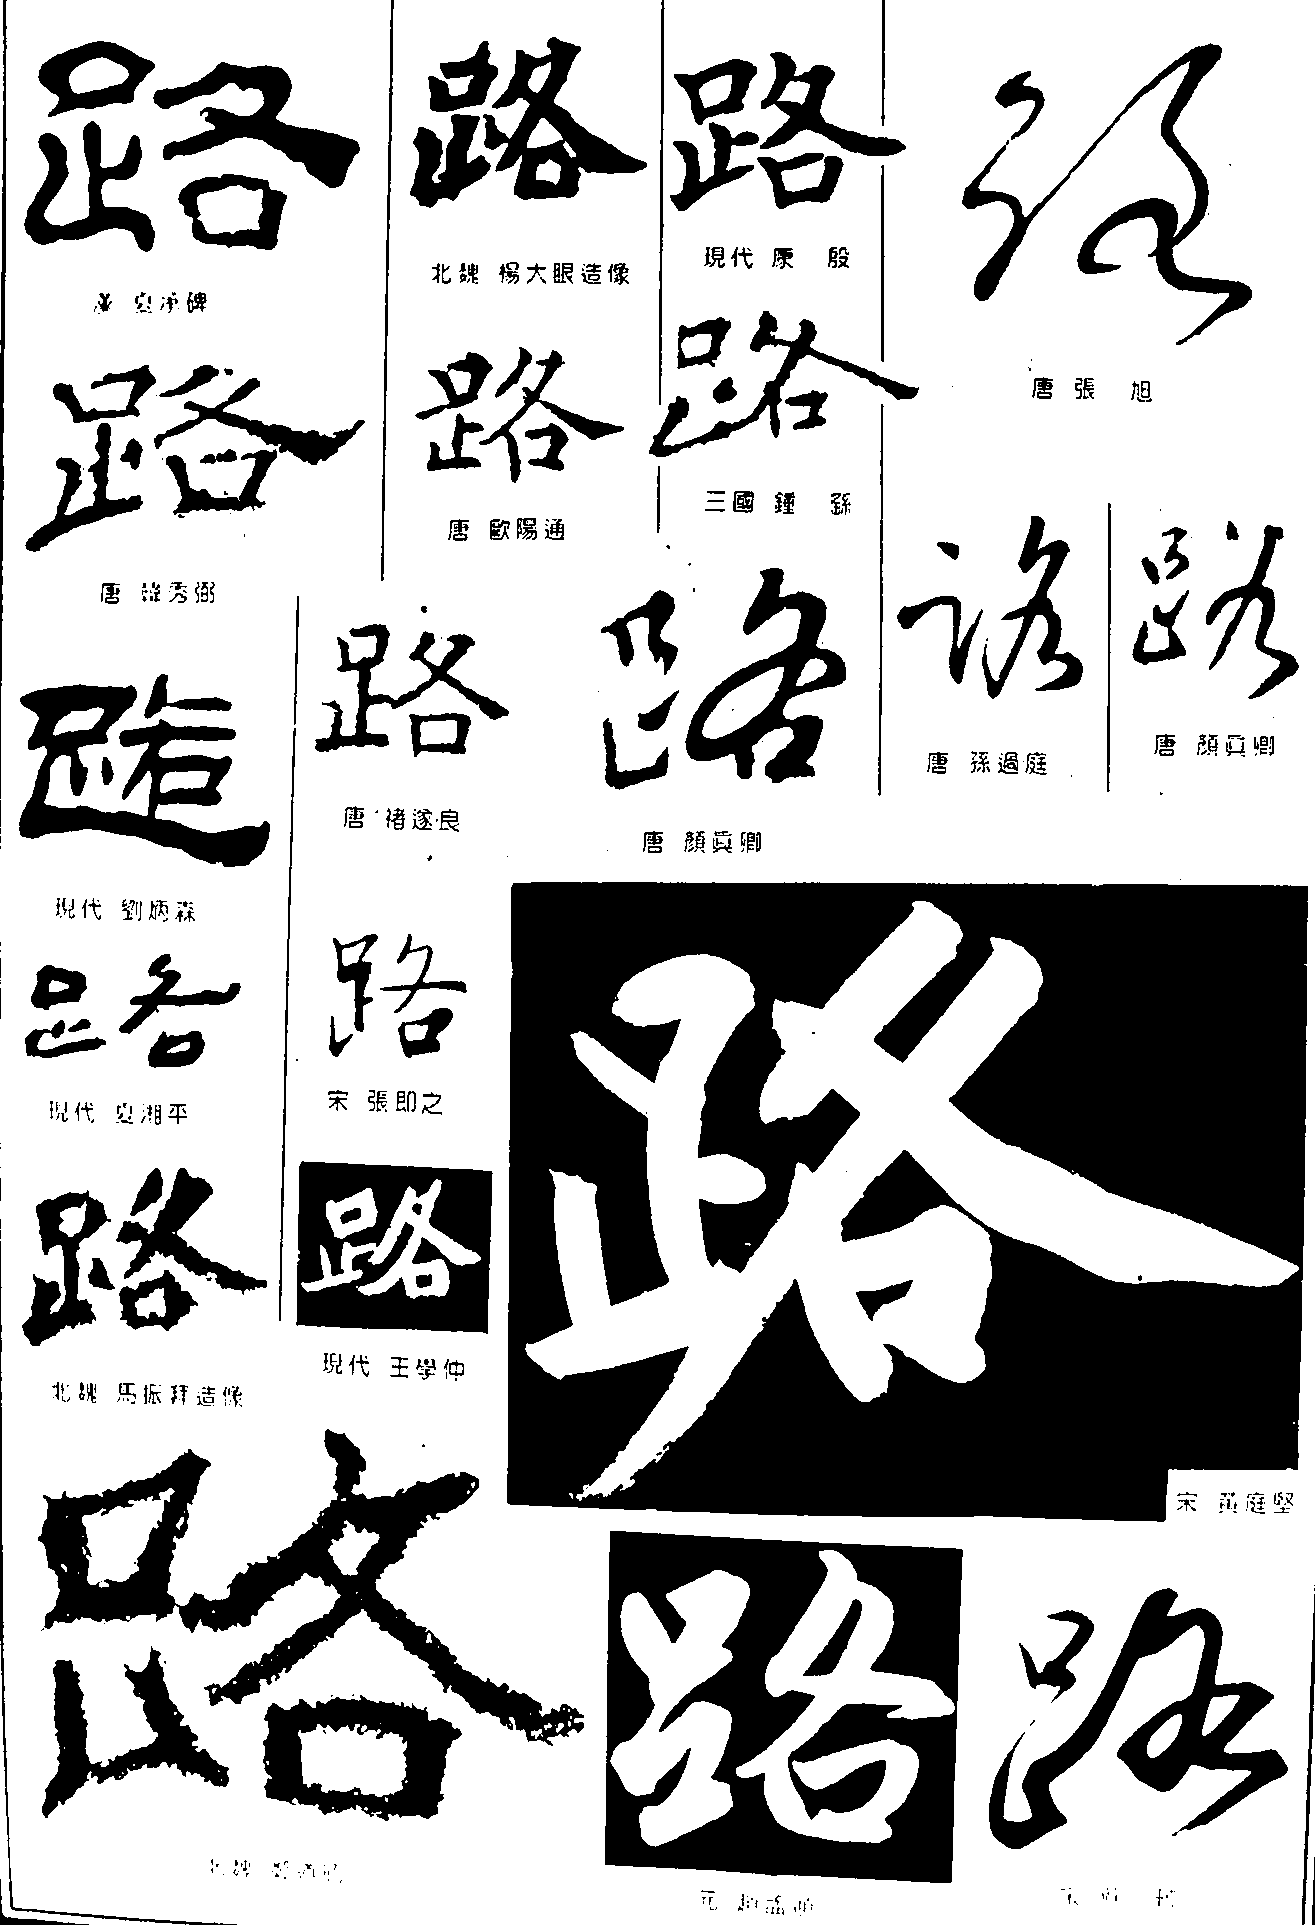 路 路 路 路
漢 夏承碑
北魏 楊大眼造像
現代 康 殷
唐 張 旭
路 路 路
唐 韓秀弼
唐 歐陽通
三國 鍾 繇
路 路 路 路 路 路
現代 劉炳森
唐 褚遂良
唐 顏真卿
唐 孫過庭
唐 顏真卿
路 路 路
現代 夏湘平
宋 張即之
宋 黃庭堅
路 路
北魏 馬振拜造像
現代 王學仲
路 路 路
北魏 鄭道昭
元 趙孟頫